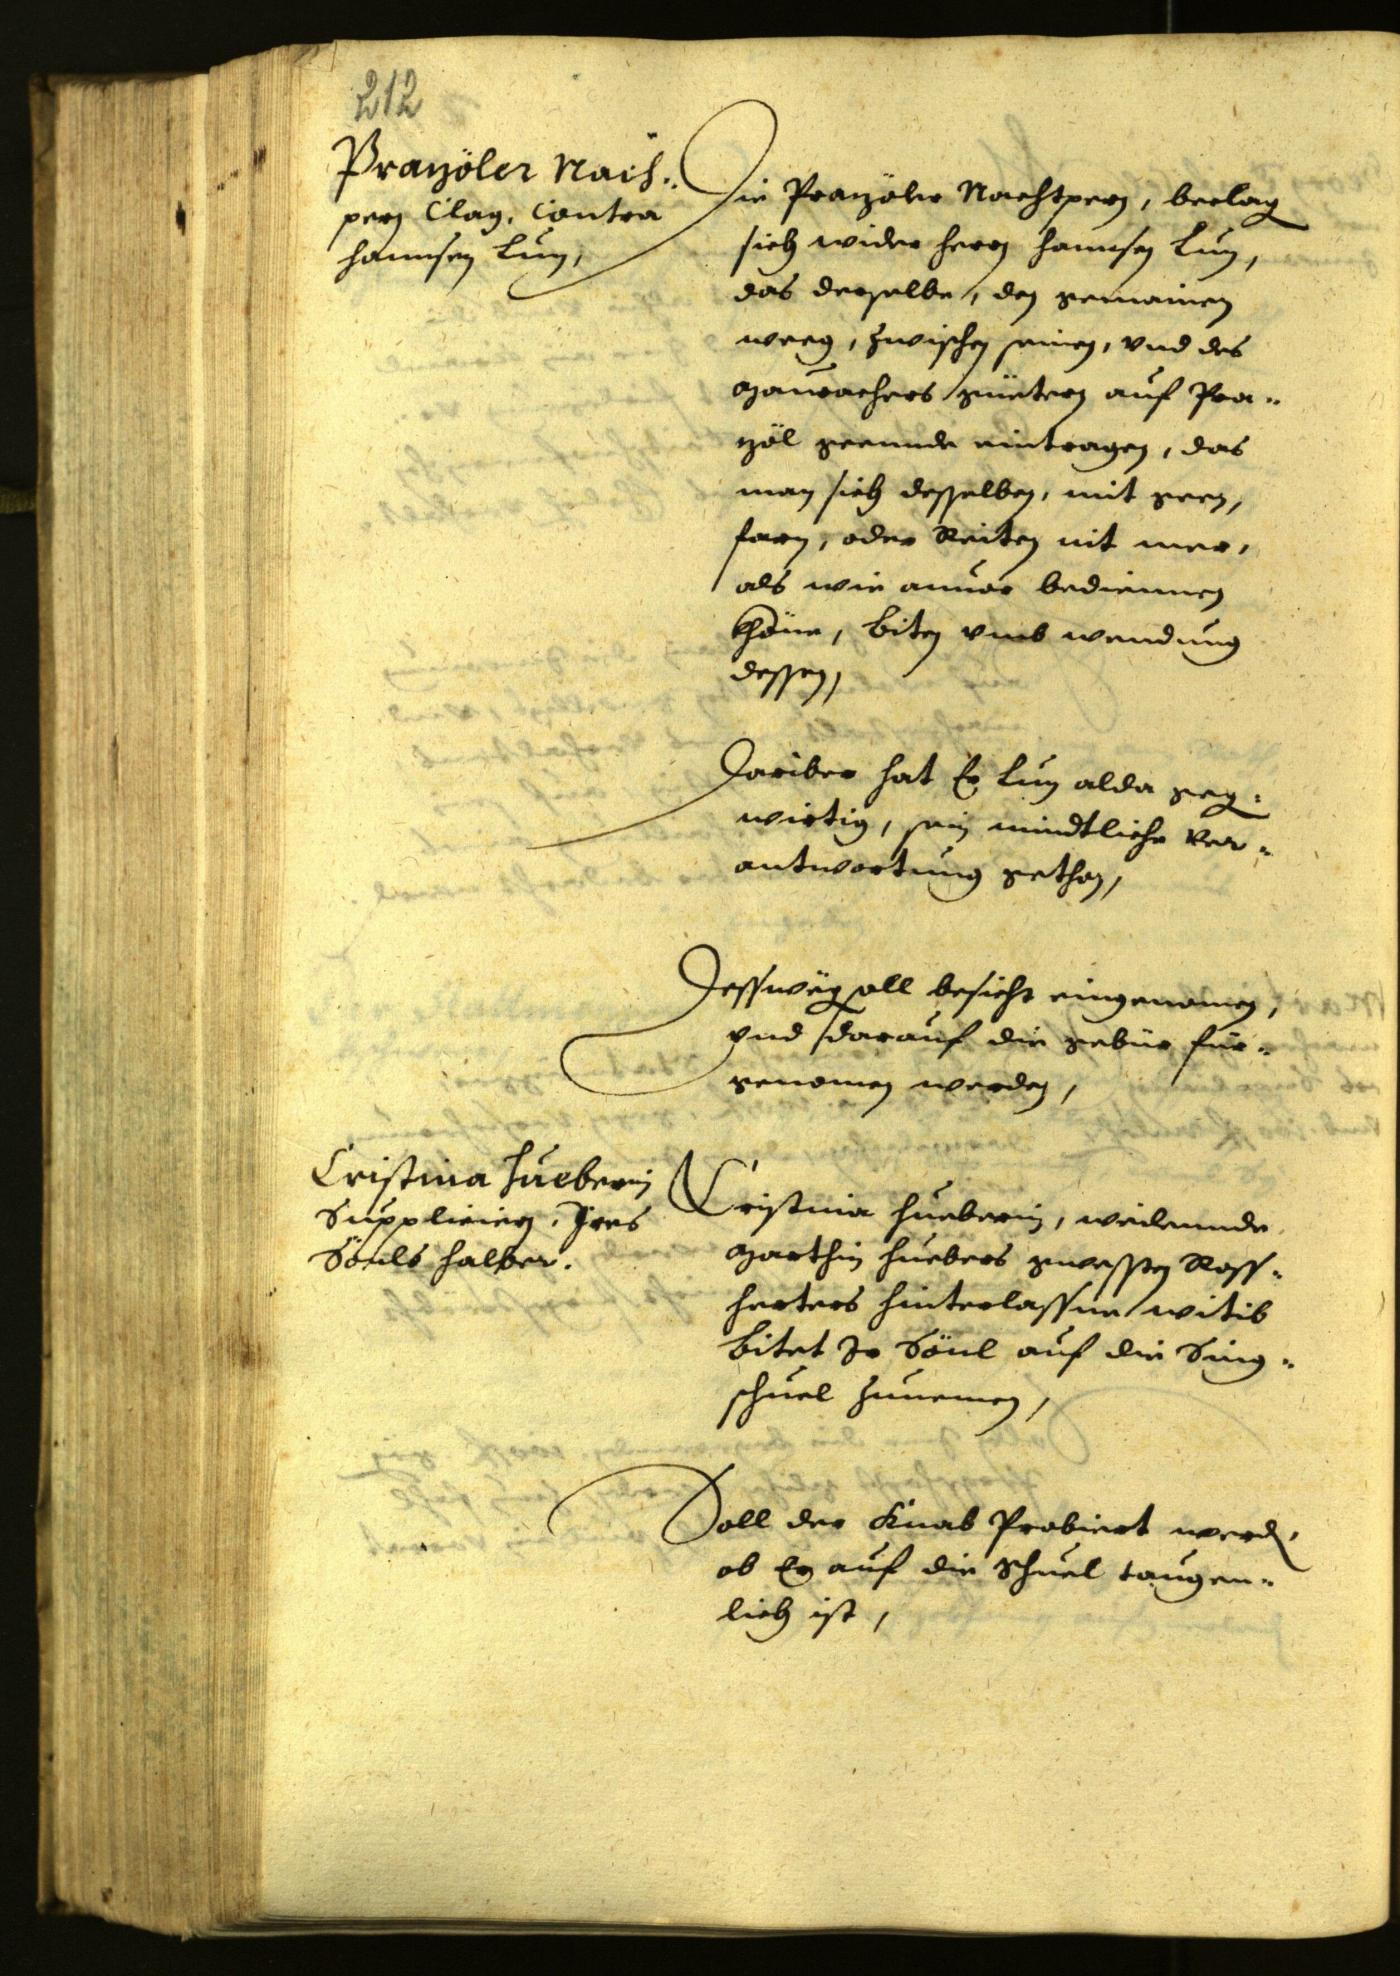 212
Prazöler Nach¬
pern Clag, Contra
hannsen Lun,
Die Prazöler Nachtpern, beclag
sich wider herrn hannsen Lun,
das derselbe, den gemainen
weeg, zwischen seinen, vnd des
Maurachers güetern auf Pra¬
zöl geennde eintragen, das
man sich desselben, mit geen,
farn, oder Reiten nit mer,
als wie anuor bediennen
khöne, biten vmb wendung
dessen,
Dariber hat Er Lun alda geg¬
wirtig, sein mindtliche Ver¬
antwortung gethan,
Desswëg soll besicht eingenomen,
vnd darauf die gebür für¬
genomen werden,
Cristina Hueberin
Supplicien, Ires
Sönls halber.
Cristina Hueberin, weilennde
Marthin Huebers gwessten Ross¬
herters hinterlassne witib
bitet Ir Sönl auf die Sing¬
schuel zunemen,
Soll der Knab Probiert werd,
ob Er auf die Schuel taugen¬
lich ist,